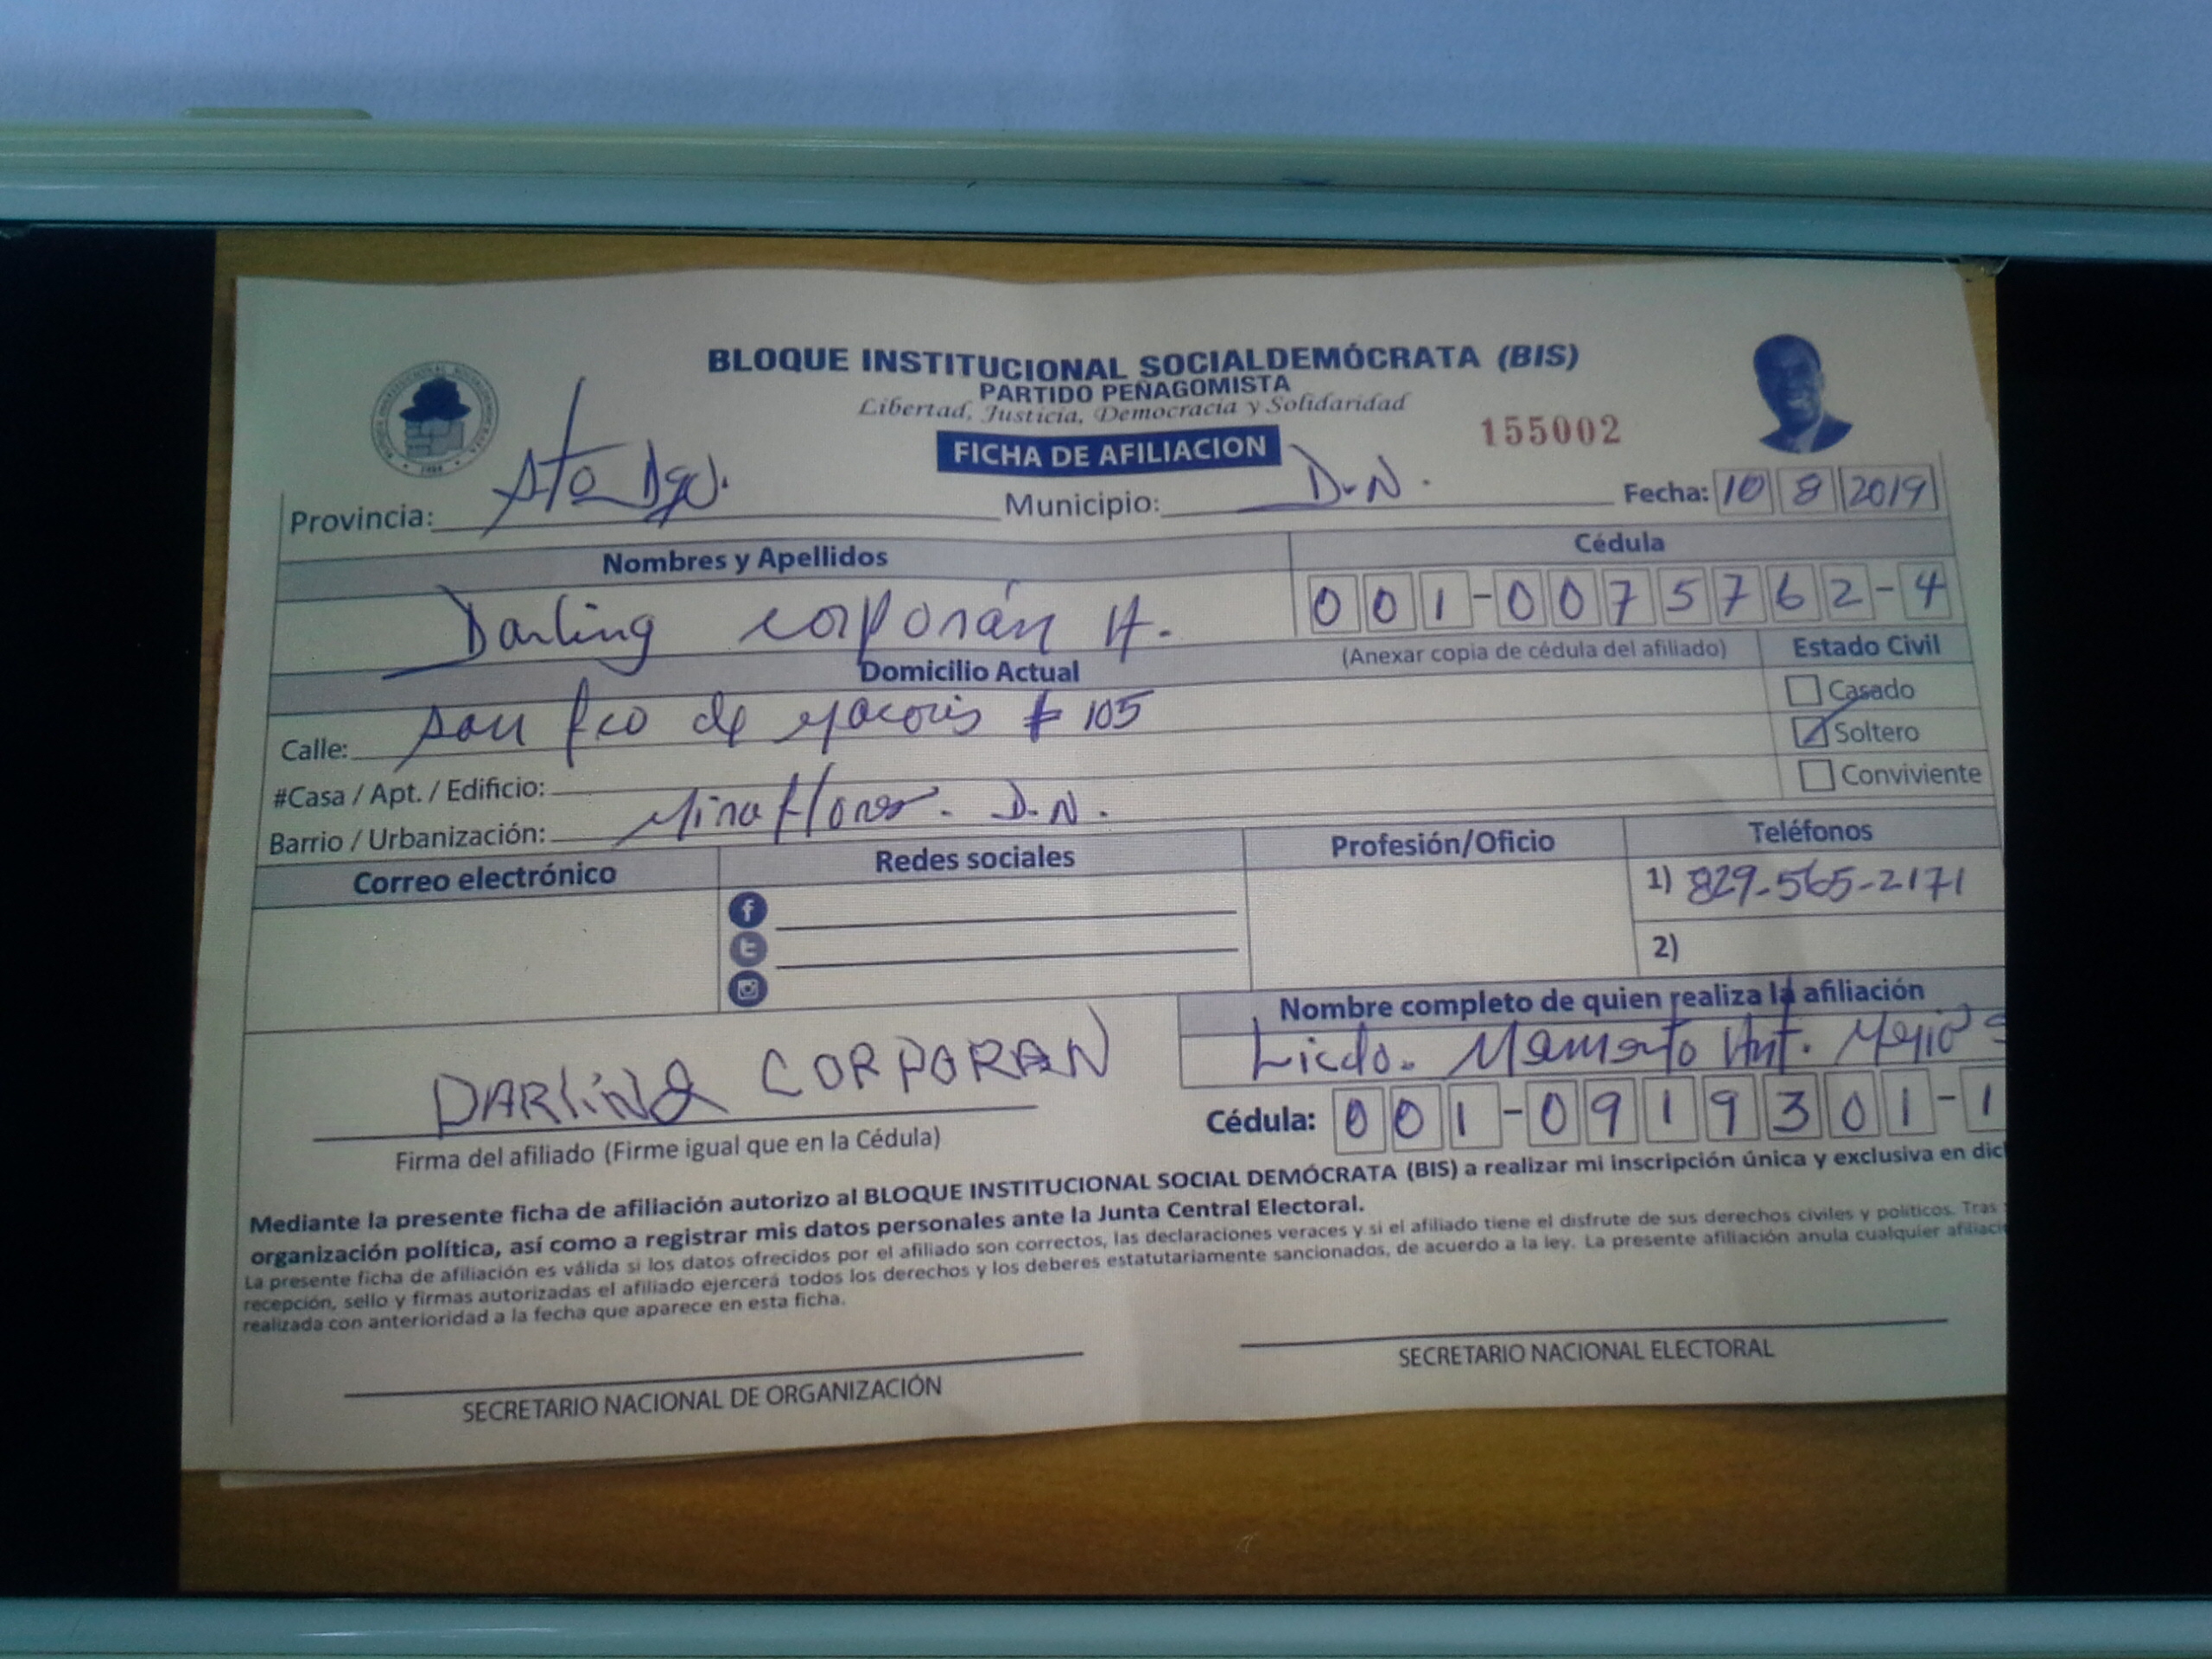 BLOQUE INSTITUCIONAL SOCIALDEMÓCRATA (BIS)
PARTIDO PEÑAGOMISTA
Libertad, Justicia, Democracia y Solidaridad
155002
FICHA DE AFILIACION
Provincia: Sto Dgo. Municipio: D.N. Fecha: 10 8 2019
Nombres y Apellidos Cédula
Darling corporán H. 001-0075762-4
(Anexar copia de cédula del afiliado) Estado Civil
Domicilio Actual
Casado
Calle: san fco de macoris # 105
Soltero
#Casa / Apt. / Edificio:
Conviviente
Barrio / Urbanización: Miraflores. D.N.
Correo electrónico Redes sociales Profesión/Oficio Teléfonos
1) 829-565-2171
2)
Nombre completo de quien realiza la afiliación
Licdo. Ant.
DARLING CORPORAN
Cédula: 001-0919301-1
Firma del afiliado (Firme igual que en la Cédula)
Mediante la presente ficha de afiliación autorizo al BLOQUE INSTITUCIONAL SOCIAL DEMÓCRATA (BIS) a realizar mi inscripción única y exclusiva en dich
organización política, así como a registrar mis datos personales ante la Junta Central Electoral.
La presente ficha de afiliación es válida si los datos ofrecidos por el afiliado son correctos, las declaraciones veraces y si el afiliado tiene el disfrute de sus derechos civiles y políticos. Tras
recepción, sello y firmas autorizadas el afiliado ejercerá todos los derechos y los deberes estatutariamente sancionados, de acuerdo a la ley. La presente afiliación anula cualquier afiliació
realizada con anterioridad a la fecha que aparece en esta ficha.
SECRETARIO NACIONAL DE ORGANIZACIÓN
SECRETARIO NACIONAL ELECTORAL